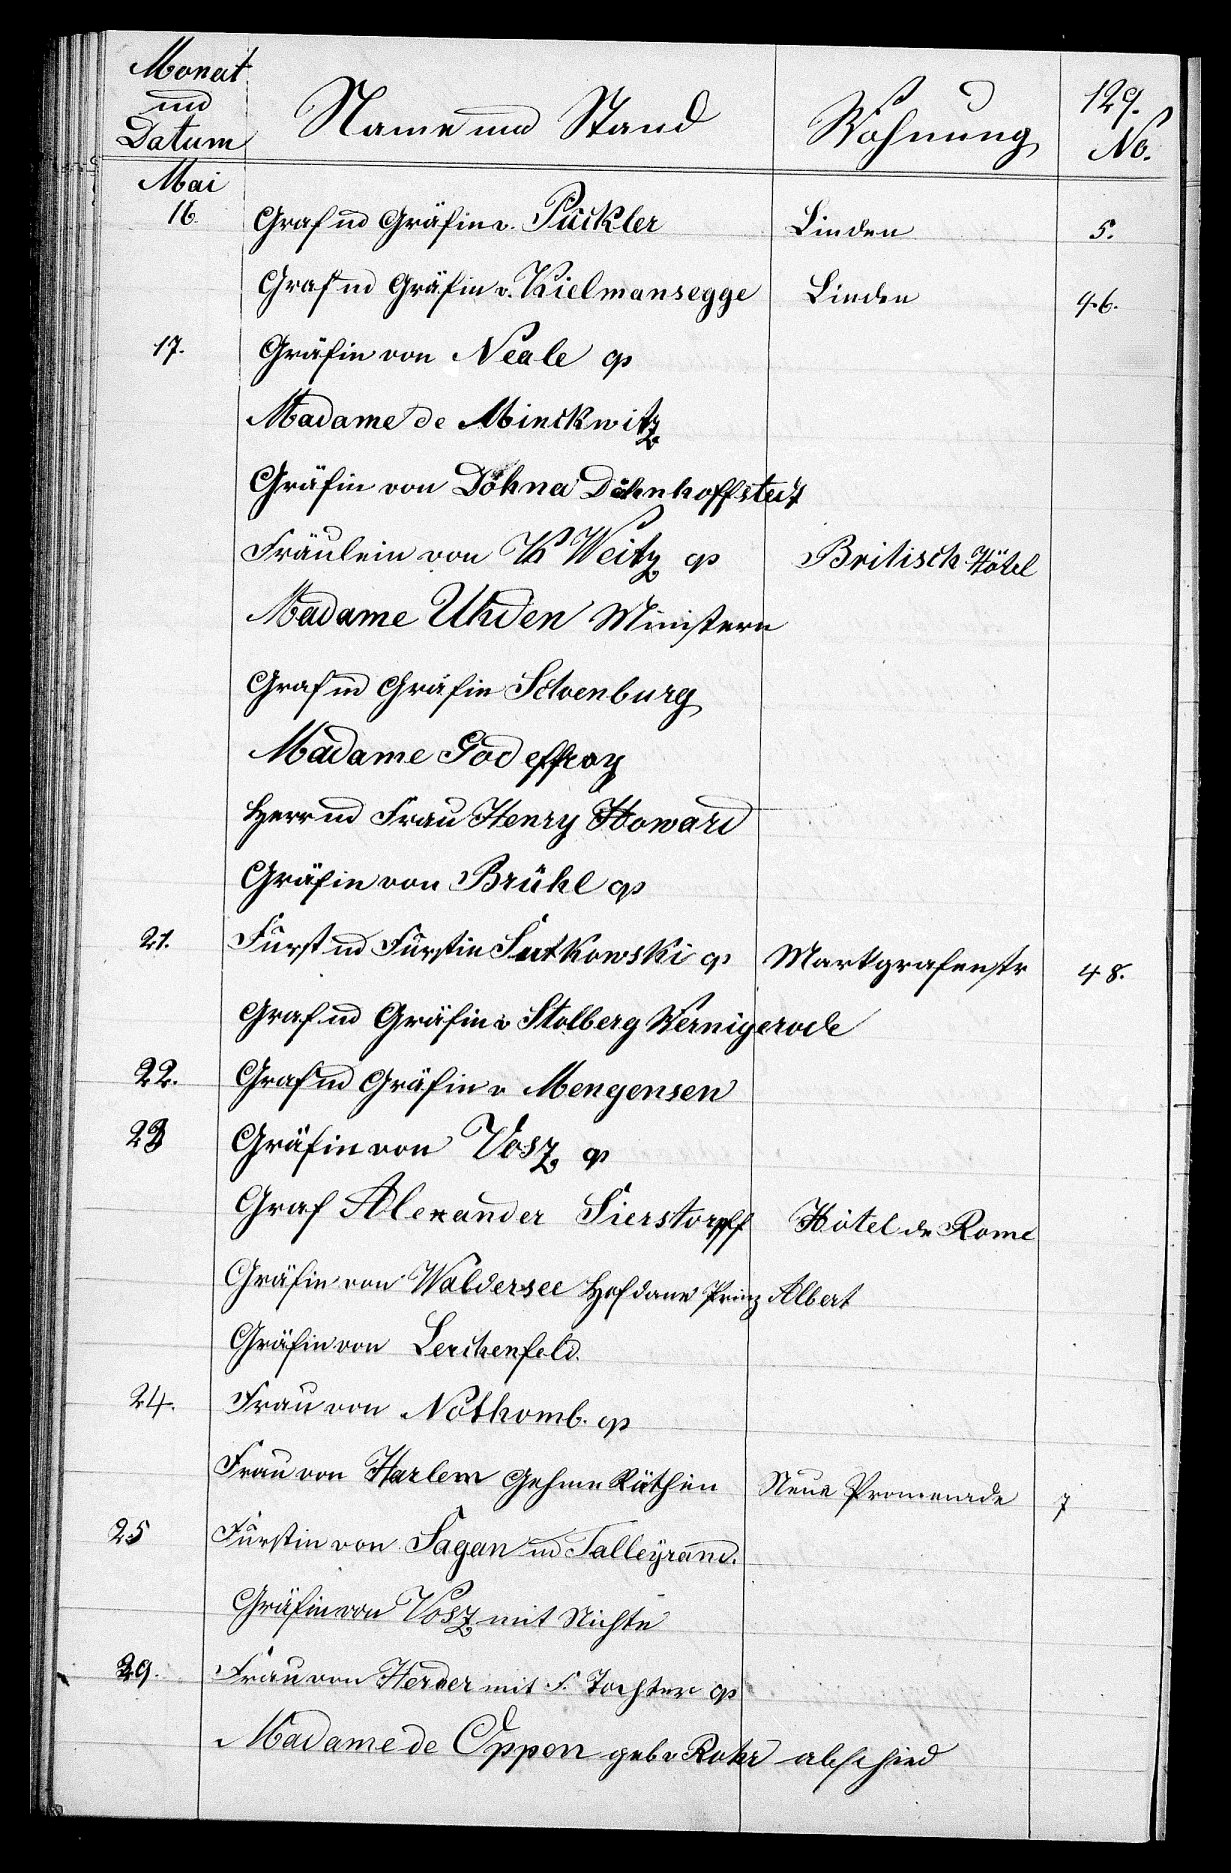 129.
Monat und Datum Name und Stand Wohnung No.
Mai
16. Graf und Gräfin v. Pückler Linden 5.
Graf und Gräfin v. Kielmansegge Linden 46.
17. Gräfin von Neale gs
Madame de Minckwitz
Gräfin von Döhna Dönhoffstedt
Fräulein von K Weitz gs Britisch Hôtel
Madame Uhden Ministern
Graf und Gräfin Schoenburg
Madame Godeffroy
Herr und Frau Henry Howard
Gräfin von Brühl gs
21. Fürst und Fürstin Sutkowski gs Markgrafenstr 48.
Graf und Gräfin v Stolberg Wernigerode
22. Graf und Gräfin v Mengensen
23 Gräfin von Vosz gs
Graf Alexander Sierstorpff Hôtel de Rome
Gräfin von Waldersee Hofdame Prinz Albert
Gräfin von Lerchenfeld.
24. Frau von Nothomb. gs
Frau von Harlem Gehme Räthin Neue Promenade 7
25 Fürstin von Sagan und Talleyrand.
Gräfin von Vosz mit Nichte
29. Frau von Herder mit F. Tochter gs
Madame de Oppen geb v Rohr abschied